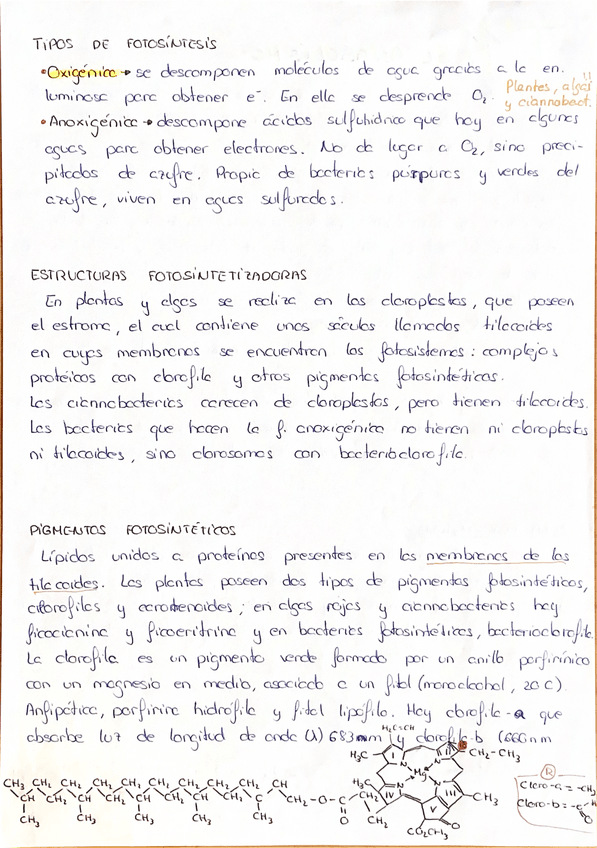 TIPOS DE FOTOSÍNTESIS
• Oxigénica → se descomponen moléculas de agua gracias a la en.
luminosa para obtener e⁻. En ella se desprende O₂.
Plantes, algas
y ciannobact.
• Anoxigénica → descompone ácidos sulfuhídrico que hay en algunas
aguas para obtener electrones. No da lugar a O₂, sino preci-
pitados de azufre. Propia de bacterias púrpuras y verdes del
azufre, viven en aguas sulfuradas.
ESTRUCTURAS FOTOSINTETIZADORAS
En plantas y algas se realiza en los cloroplastos, que poseen
el estroma, el cual contiene unos sáculos llamados tilacoides
en cuyas membranas se encuentran los fotosistemas: complejos
protéicos con clorofila y otros pigmentos fotosintéticos.
Las ciannobacterias carecen de cloroplastos, pero tienen tilacoides.
Las bacterias que hacen la f. anoxigénica no tienen ni cloroplastos
ni tilacoides, sino clorosomas con bacterioclorofila.
PIGMENTOS FOTOSINTÉTICOS
Lípidos unidos a proteínas presentes en las membranas de los
tilacoides. Las plantas poseen dos tipos de pigmentos fotosintéticos,
clorofilas y carotenoides; en algas rojas y ciannobacterias hay
ficocianina y ficoeritrina y en bacterias fotosintéticas, bacterioclorofila.
La clorofila es un pigmento verde formado por un anillo porfirínico
con un magnesio en medio, asociado a un fitol (monoalcohol, 20 C).
Anfipática, porfirina hidrófila y fitol lipófila. Hay clorofila-a que
absorbe luz de longitud de onda (λ) 683 nm y clorofila-b (660 nm
H₂C=CH
H₃C I II CH₂-CH₃
N N
Mg
N N
H₃C IV III CH₃
V
CH₃ CH₂ CH₂ CH₂ CH₂ CH₂ CH₂ CH₂ CH₂ CH₂ C CH CH₂-O-C CH₂ CH₂
CH CH CH
CH₃ CH₃ CH₃ CH₃
O
CO₂CH₃ O
R
Cloro-a = -CH₃
Cloro-b = -C H O